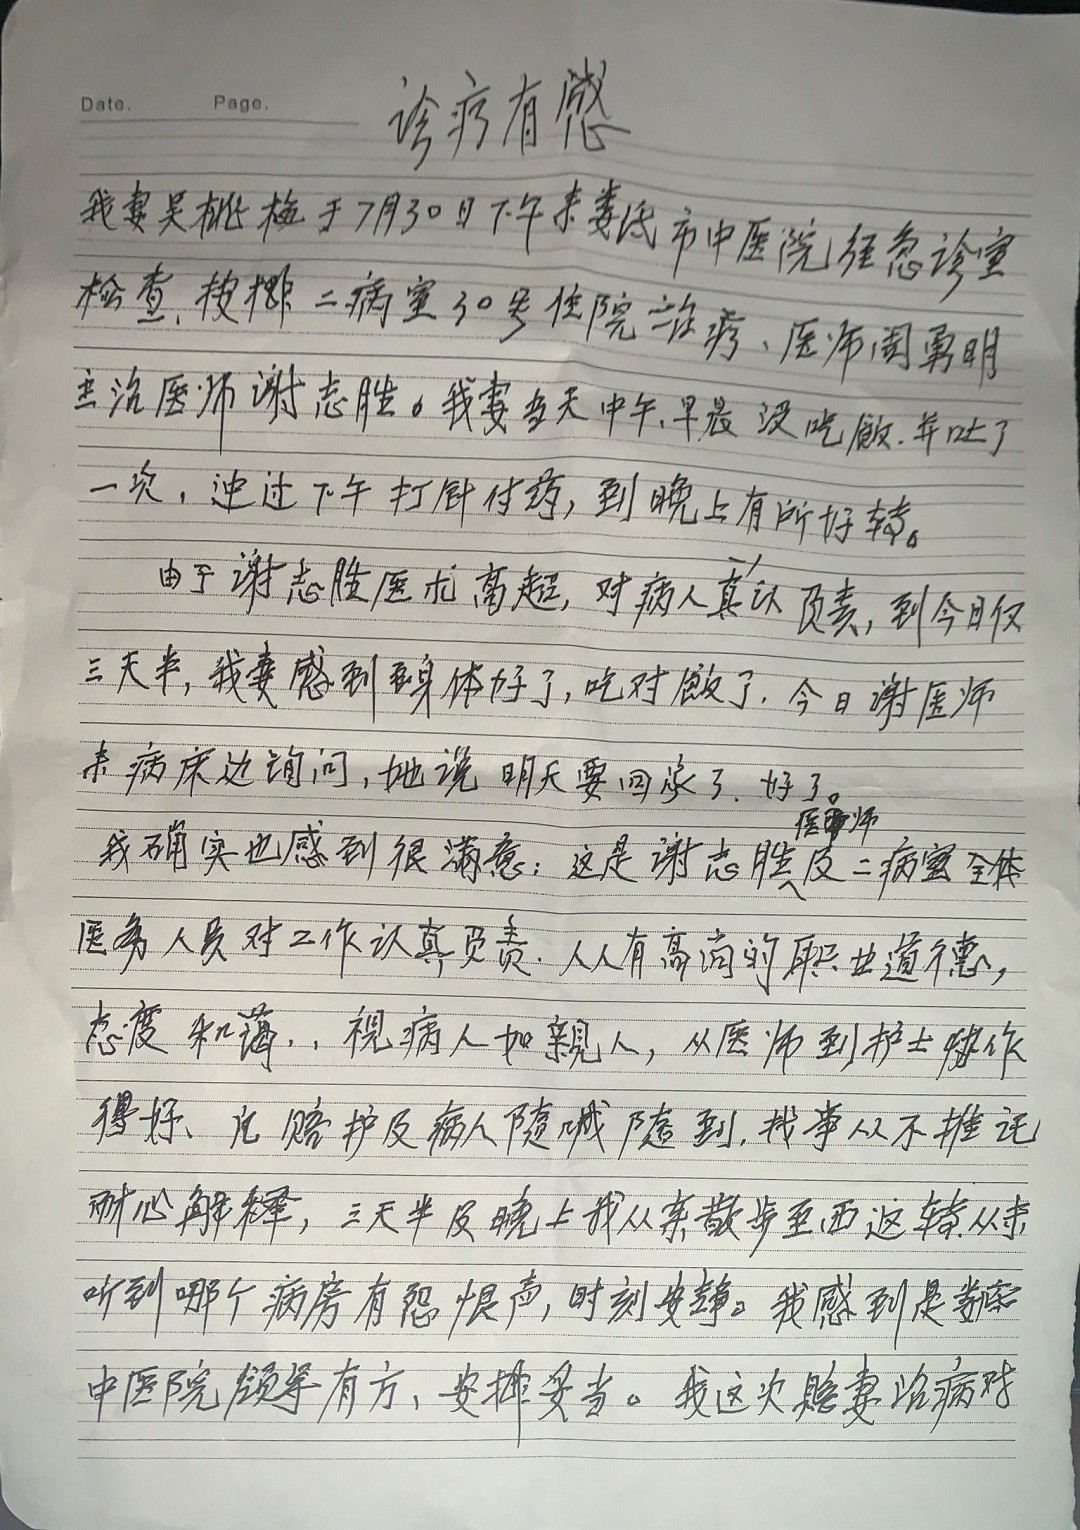 Date. Page.
诊疗有感
我妻吴桃梅于7月30日下午来娄底市中医院经急诊室
检查、按排二病室30号住院治疗、医师周勇明
主治医师谢志胜。我妻当天中午、早晨没吃饭.并吐了
一次，通过下午打针付药，到晚上有所好转。
由于谢志胜医术高超，对病人真认负责，到今日仅
三天半，我妻感到身体好了，吃对饭了.今日谢医师
来病床边询问，她说明天要回家了、好了。
我确实也感到很满意：这是谢志胜医师及二病室全体
医务人员对工作认真负责.人人有高尚的职业道德，
态度和蔼..视病人如親人，从医师到护士协作
得好、陪护及病人随喊随到，找事从不推讬
耐心解释，三天半及晚上我从东散步至西这转.从未
听到哪个病房有怨恨声，时刻安静。我感到是
中医院领导有方、安排妥当。我这次陪妻治病对